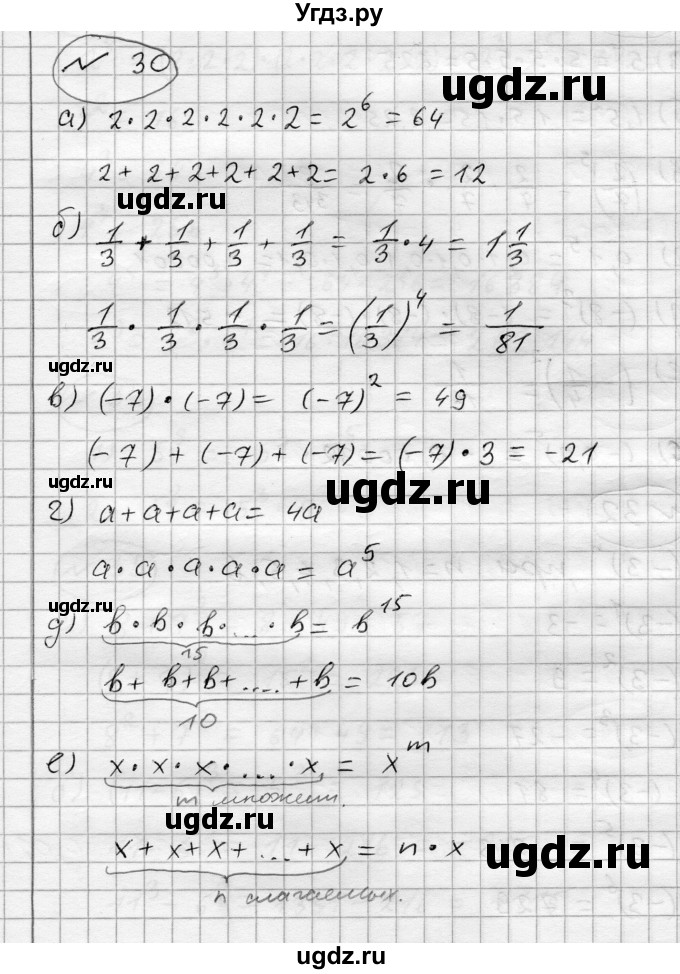 Угдз.ру
№ 30
ugdz.ru
а) 2·2·2·2·2·2 = 2⁶ = 64
2+2+2+2+2+2 = 2·6 = 12
ugdz.ru
б) 1/3 + 1/3 + 1/3 + 1/3 = 1/3 · 4 = 1 1/3
1/3 · 1/3 · 1/3 · 1/3 = (1/3)⁴ = 1/81
ugdz.ru
в) (-7)·(-7) = (-7)² = 49
(-7) + (-7) + (-7) = (-7)·3 = -21
ugdz.ru
ugdz.ru
г) a+a+a+a = 4a
a·a·a·a·a = a⁵
ugdz.ru
д) b·b·b·...·b = b¹⁵
15
ugdz.ru
b+b+b+....+b = 10b
10
е) x·x·x·....·x = xᵐ
m множит.
ugdz.ru
x+x+x+...+x = n·x
ugdz.ru
n слагаемых.
ugdz.ru